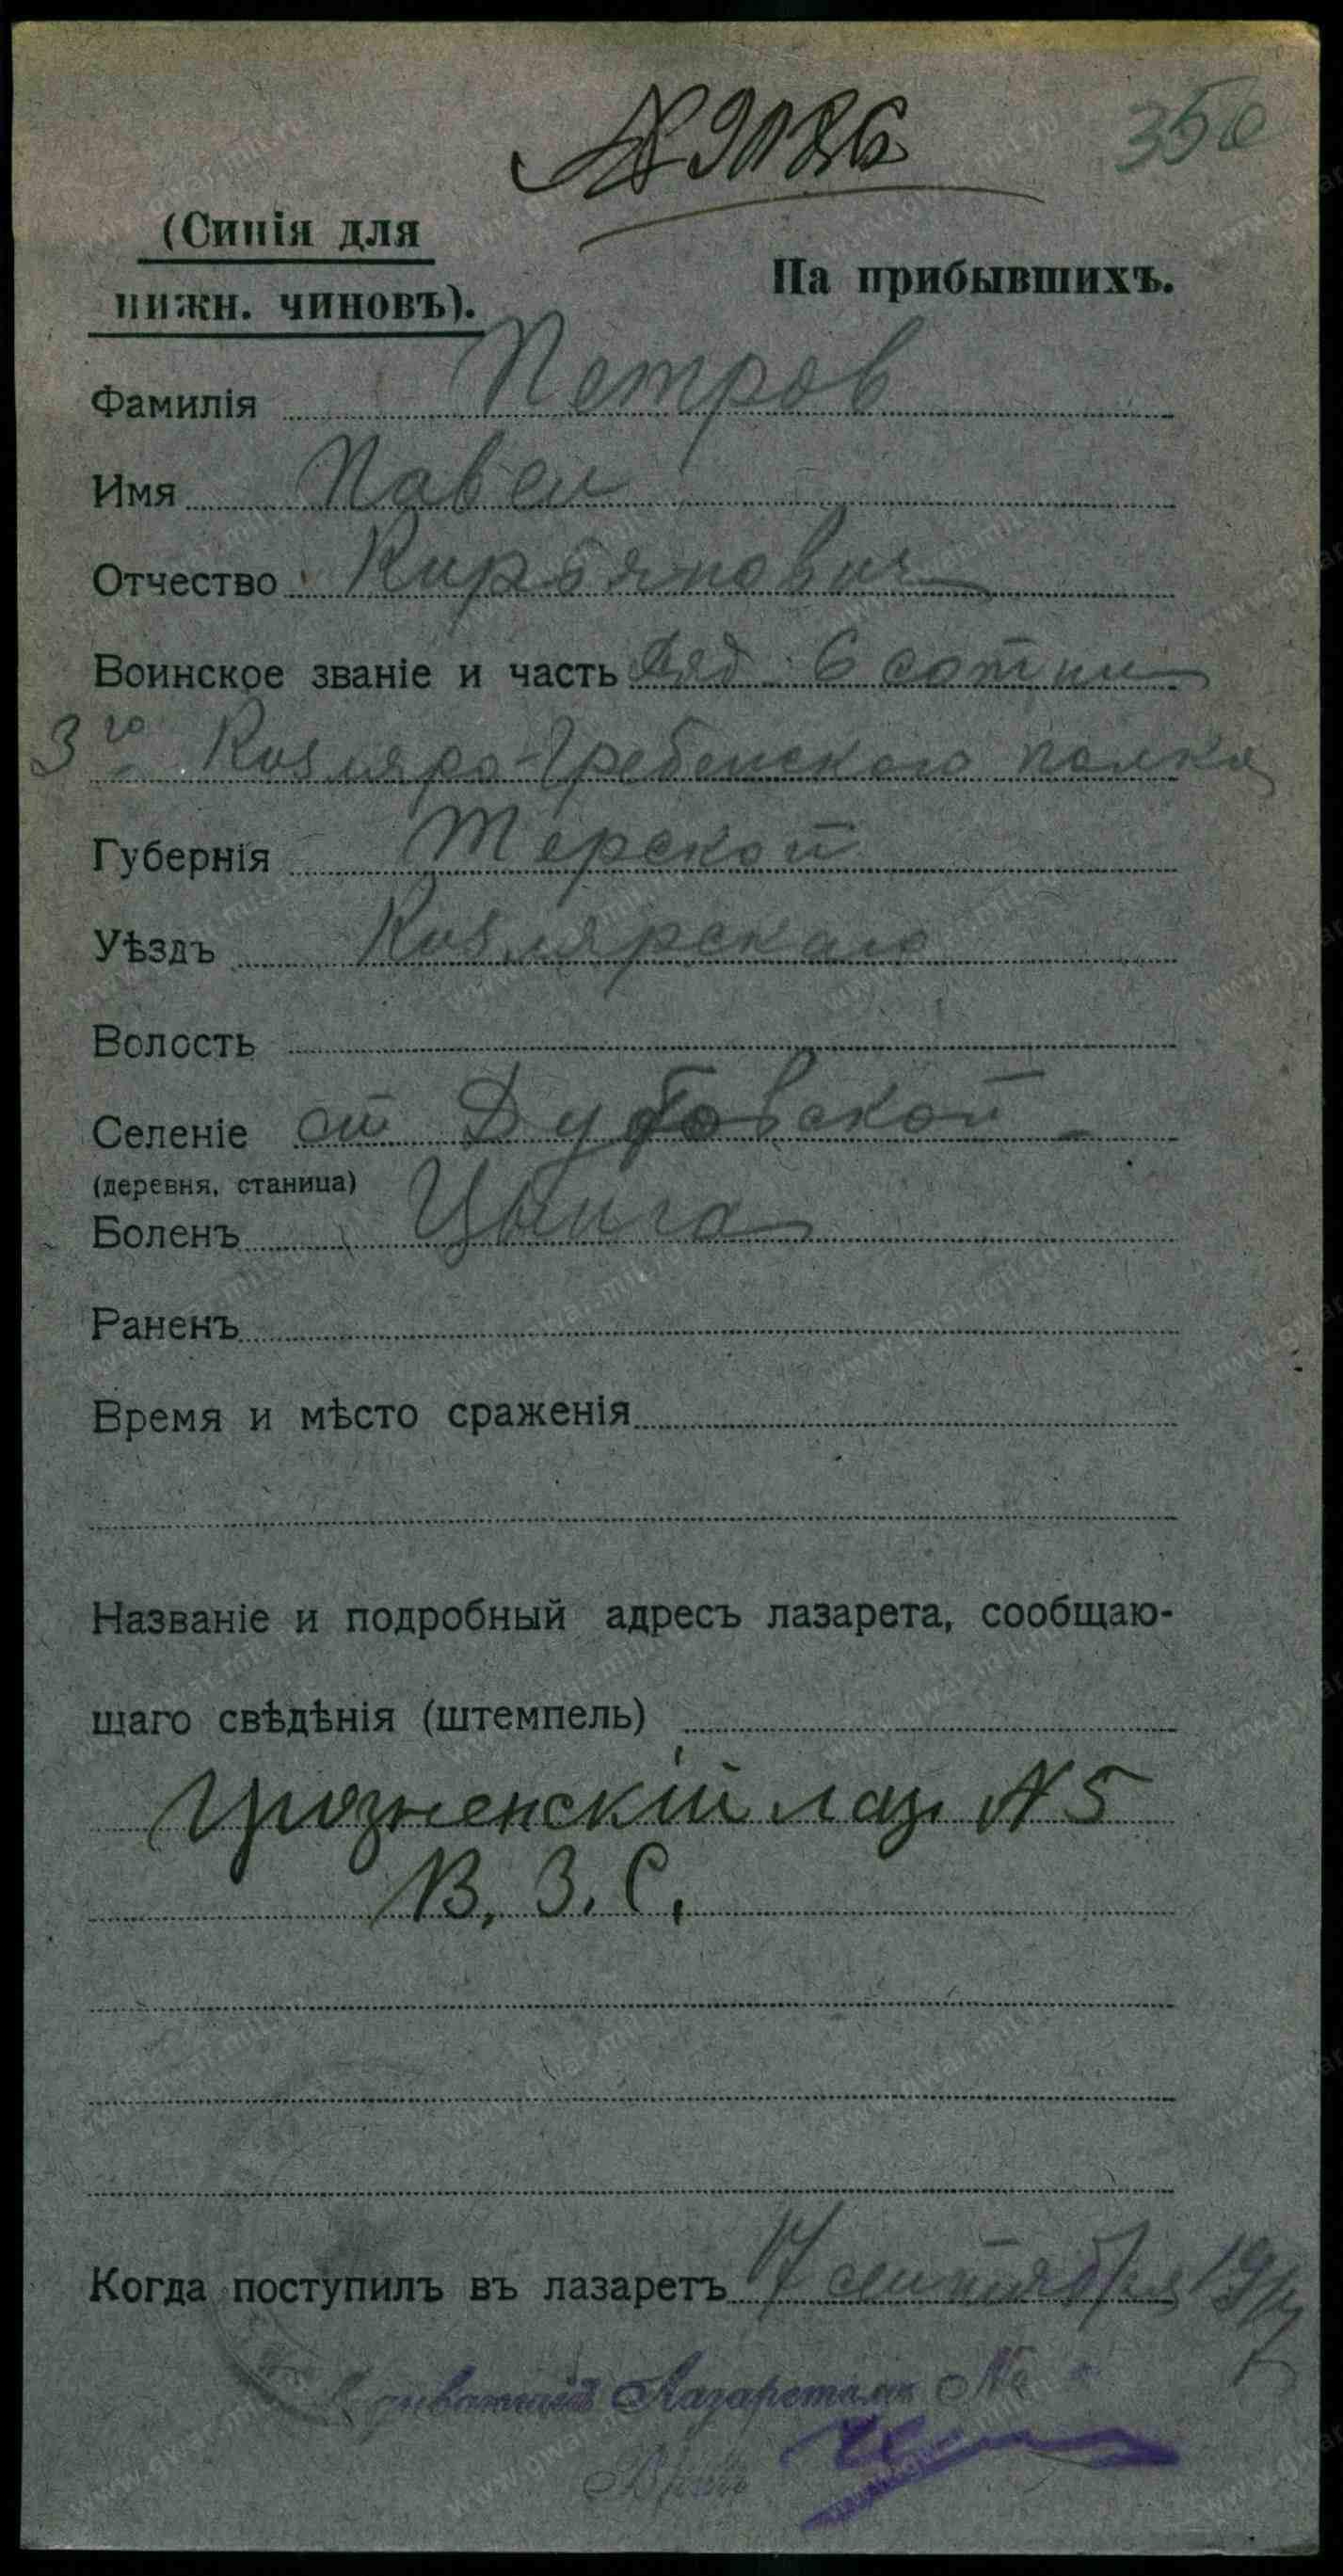 № 9186
356
(Синія для
нижн. чиновъ).
На прибывшихъ.
Фамилія Петров
Имя Павел
Отчество Кирьянович
Воинское званіе и часть Ряд. 6 сотни
3го Кизляро-Гребенского полка
Губернія Терской
Уѣздъ Кизлярского
Волость
Селеніе ст Дубовской
(деревня, станица)
Боленъ Цынга
Раненъ
Время и мѣсто сраженія
Названіе и подробный адресъ лазарета, сообщаю-
щаго свѣдѣнія (штемпель)
Грозненскій лаз. № 5
В. З. С.
Когда поступилъ въ лазаретъ 17 сентября
Лазаретомъ №
Врачъ
www.gwar.mil.ru